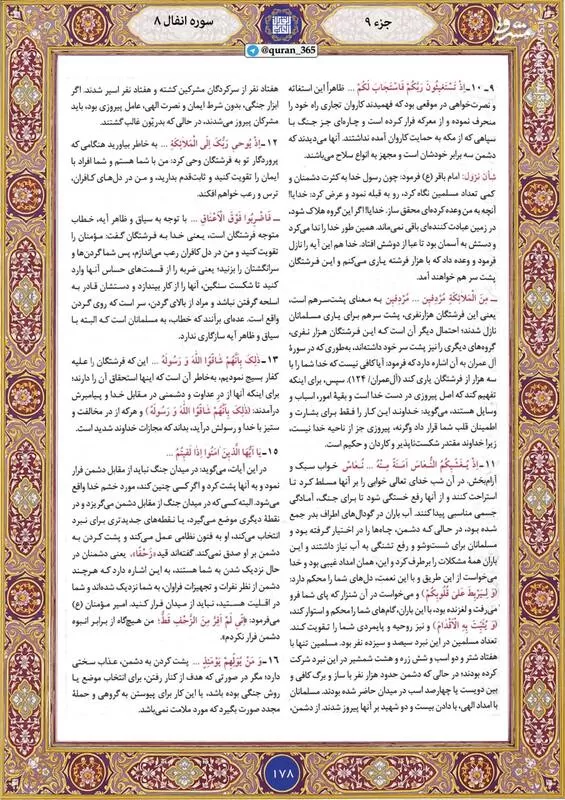 جزء ۹
سوره انفال ۸
@quran_365
مشرق
۹ ـ ۱۰ـ إِذْ تَسْتَغِيثُونَ رَبَّكُمْ فَاسْتَجَابَ لَكُمْ ... ظاهراً این استغاثه
و نصرت‌خواهی در موقعی بود که فهمیدند کاروان تجاری راه خود را
منحرف نموده و از معرکه فرار کرده است و چاره‌ای جز جنگ با
سپاهی که از مکه به حمایت کاروان آمده نداشتند. آنها می‌دیدند که
دشمن سه برابر خودشان است و مجهز به انواع سلاح می‌باشند.
شأن نزول: امام باقر (ع) فرمود: چون رسول خدا به کثرت دشمنان و
کمی تعداد مسلمین نگاه کرد، رو به قبله نمود و عرض کرد: خدایا!
آنچه به من وعده کرده‌ای محقق ساز. خدایا! اگر این گروه هلاک شود،
در زمین عبادت کننده‌ای باقی نمی‌ماند. همین طور خدا را ندا می‌کرد
و دستش به آسمان بود تا عبا از دوشش افتاد. خدا هم این آیه را نازل
فرمود و وعده داد که با هزار فرشته یاری می‌کنم و این فرشتگان
پشت سر هم خواهند آمد.
ـ مِنَ الْمَلَائِكَةِ مُرْدِفِينَ ... مُرْدِفین به معنای پشت‌سرهم است،
یعنی این فرشتگان هزارنفری، پشت سرهم برای یاری مسلمانان
نازل شدند؛ احتمال دیگر آن است که این فرشتگان هزار نفری،
گروه‌های دیگری را نیز پشت سر خود داشته‌اند، به‌طوری که در سورهٔ
آل عمران به آن اشاره دارد که فرمود: آیا کافی نیست که خدا شما را با
سه هزار از فرشتگان یاری کند (آل‌عمران/ ۱۲۴). سپس، برای اینکه
تفهیم کند که اصل پیروزی در دست خدا است و بقیهٔ امور، اسباب و
وسایل هستند، می‌گوید: خداوند این کار را فقط برای بشارت و
اطمینان قلب شما قرار داد وگرنه، پیروزی جز از ناحیه خدا نیست،
زیرا خداوند مقتدر شکست‌ناپذیر و کاردان و حکیم است.
۱۱ ـ إِذْ يُغَشِّيكُمُ النُّعَاسَ أَمَنَةً مِنْهُ ... نُعاس خواب سبک و
آرام‌بخش. در آن شب خدای تعالی خوابی را بر آنها مسلط کرد تا
استراحت کنند و از آنها رفع خستگی شود تا برای جنگ، آمادگی
جسمی مناسبی پیدا کنند. آب باران در گودال‌های اطراف بدر جمع
شده بود، در حالی که دشمن، چاه‌ها را در اختیار گرفته بود و
مسلمانان برای شست‌وشو و رفع تشنگی به آب نیاز داشتند و این
باران همهٔ مشکلات را برطرف کرد و این، همان امداد غیبی بود و خدا
می‌خواست از این طریق و با این نعمت، دل‌های شما را محکم دارد:
(وَ لِيَرْبِطَ عَلَىٰ قُلُوبِكُمْ) و می‌خواست در آن شنزار که پای شما فرو
می‌رفت و لغزنده بود، با این باران، گام‌های شما را محکم و استوار کند،
(وَ يُثَبِّتَ بِهِ الْأَقْدَامَ) و نیز روحیه و پایمردی شما را تقویت کند.
تعداد مسلمین در این نبرد سیصد و سیزده نفر بود. مسلمین تنها با
هفتاد شتر و دو اسب و شش زره و هشت شمشیر در این نبرد شرکت
کرده بودند؛ در حالی که دشمن حدود هزار نفر با ساز و برگ کافی و
بین دویست یا چهارصد اسب در میدان حاضر شده بودند. مسلمانان
با امداد الهی، با دادن بیست و دو شهید بر آنها پیروز شدند. از دشمن،
هفتاد نفر از سرکردگان مشرکین کشته و هفتاد نفر اسیر شدند. اگر
ابزار جنگی، بدون شرط ایمان و نصرت الهی، عامل پیروزی بود، باید
مشرکان پیروز می‌شدند، در حالی که بدریّون غالب گشتند.
۱۲ـ إِذْ يُوحِي رَبُّكَ إِلَى الْمَلَائِكَةِ ... به خاطر بیاورید هنگامی که
پروردگار تو به فرشتگان وحی کرد: من با شما هستم و شما افراد با
ایمان را تقویت کنید و ثابت‌قدم بدارید، و من در دل‌های کافران،
ترس و رعب خواهم افکند.
ـ فَاضْرِبُوا فَوْقَ الْأَعْنَاقِ ... با توجه به سیاق و ظاهر آیه، خطاب
متوجه فرشتگان است، یعنی خدا به فرشتگان گفت: مؤمنان را
تقویت کنید و من در دل کافران رعب می‌اندازم، پس شما گردن‌ها و
سرانگشتان را بزنید؛ یعنی ضربه را از قسمت‌های حساس آنها وارد
کنید تا شکست سنگین، آنها را از کار بیندازد و دستشان قادر به
اسلحه گرفتن نباشد و مراد از بالای گردن، سر است که روی گردن
واقع است. عده‌ای برآنند که خطاب، به مسلمانان است که البته با
سیاق و ظاهر آیه سازگاری ندارد.
۱۳ـ ذَٰلِكَ بِأَنَّهُمْ شَاقُّوا اللَّهَ وَ رَسُولَهُ ... این که فرشتگان را علیه
کفار بسیج نمودیم، به‌خاطر آن است که اینها استحقاق آن را دارند؛
برای اینکه آنها از در عداوت و دشمنی در مقابل خدا و پیامبرش
درآمدند: (ذَٰلِكَ بِأَنَّهُمْ شَاقُّوا اللَّهَ وَ رَسُولَهُ) و هرکه از در مخالفت و
ستیز با خدا و رسولش درآید، بداند که مجازات خداوند شدید است.
۱۵ـ يَا أَيُّهَا الَّذِينَ آمَنُوا إِذَا لَقِيتُمُ ...
در این آیات، می‌گوید: در میدان جنگ نباید از مقابل دشمن فرار
نمود و به آنها پشت کرد و اگر کسی چنین کند، مورد خشم خدا واقع
می‌شود. البته کسی که در میدان جنگ از مقابل دشمن می‌گریزد و در
نقطهٔ دیگری موضع می‌گیرد، یا نقطه‌های جدیدتری برای نبرد
انتخاب می‌کند، او به فنون نظامی عمل می‌کند و پشت کردن به
دشمن بر او صدق نمی‌کند. گفته‌اند قید «زَحْفًا»، یعنی دشمنان در
حال نزدیک شدن به شما هستند، به این اشاره دارد که هرچند
دشمن از نظر نفرات و تجهیزات فراوان، به شما نزدیک شده‌اند و شما
در اقلیت هستید، نباید از میدان فرار کنید. امیر مؤمنان (ع)
می‌فرمود: «إنّی لَمْ أَفِرَّ مِنَ الزَّحْفِ قَطُّ؛ من هیچ‌گاه از برابر انبوه
دشمن فرار نکردم».
۱۶ـ وَ مَنْ يُوَلِّهِمْ يَوْمَئِذٍ ... پشت کردن به دشمن، عذاب سختی
دارد؛ مگر در صورتی که هدف از کنار رفتن، برای انتخاب موضع یا
روش جنگی بوده باشد، یا این کار برای پیوستن به گروهی و حملهٔ
مجدد صورت بگیرد که مورد ملامت نمی‌باشد.
۱۷۸